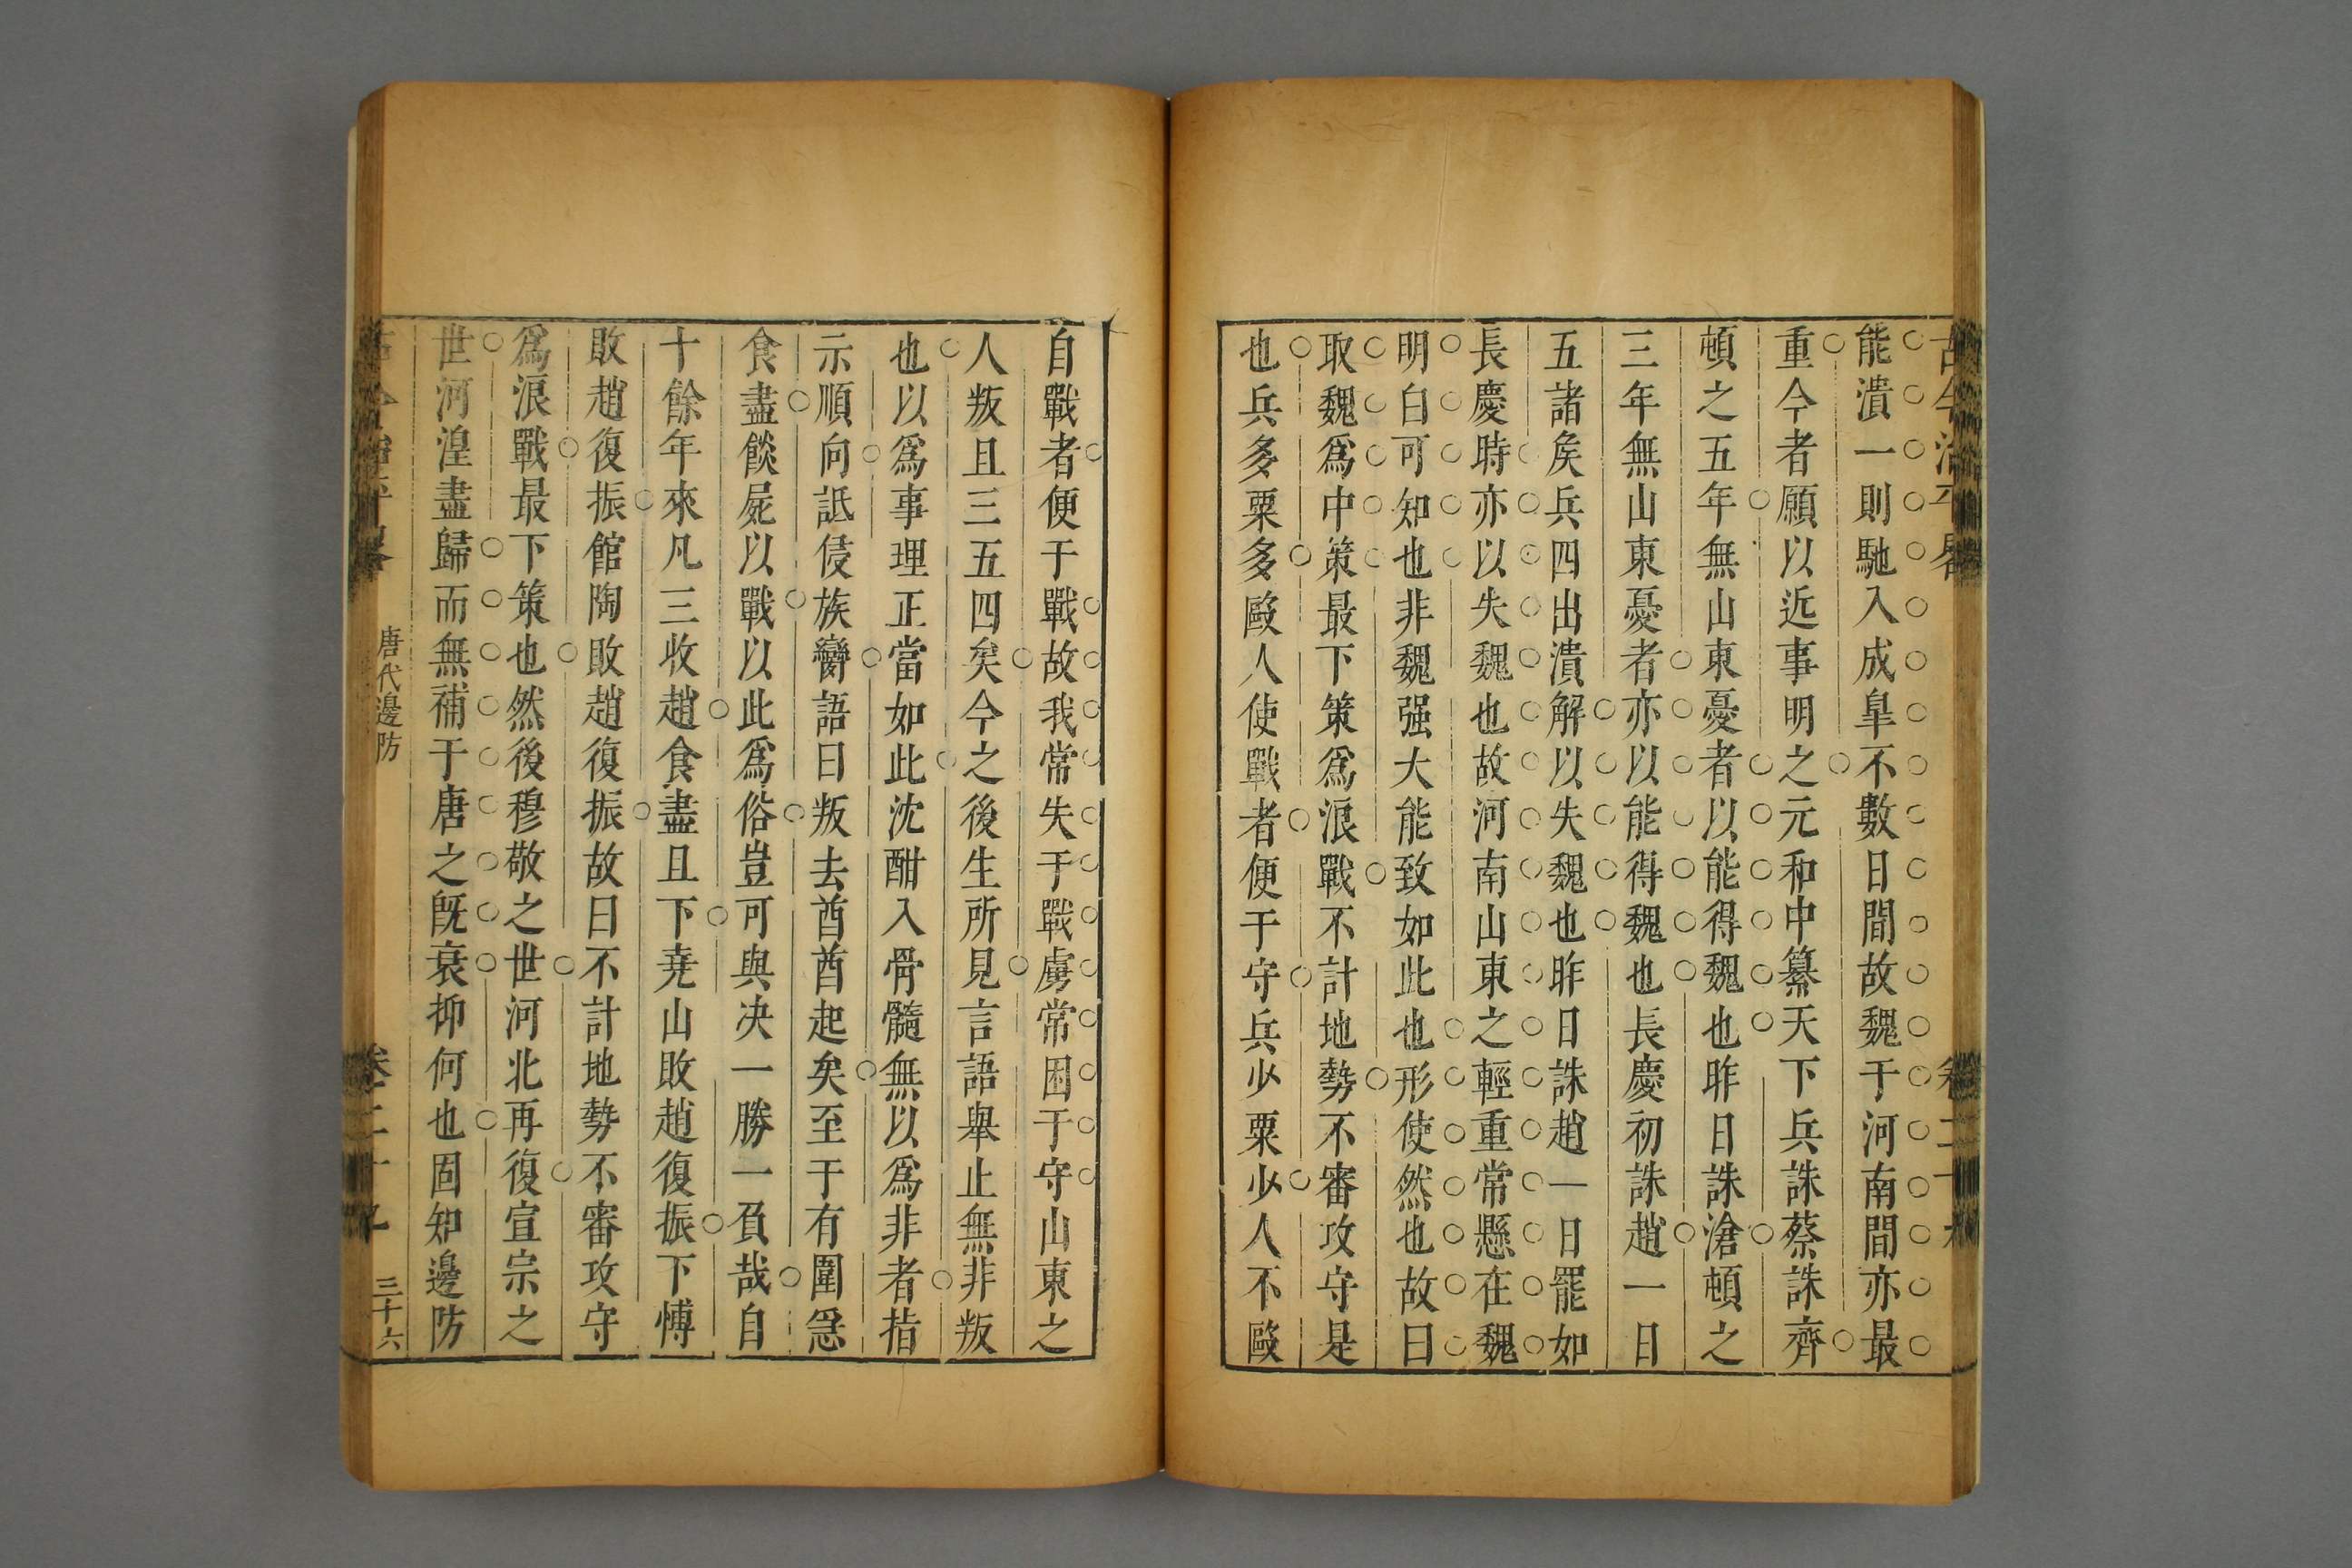 能潰一則馳入成臯不數日間故魏于河南間亦最
重今者願以近事明之元和中纂天下兵誅蔡誅齊
頓之五年無山東憂者以能得魏也昨日誅滄頓之
三年無山東憂者亦以能得魏也長慶初誅趙一日
五諸矦兵四出潰解以失魏也昨日誅趙一日罷如
長慶時亦以失魏也故河南山東之輕重常懸在魏
明白可知也非魏强大能致如此也形使然也故曰
取魏爲中策最下策爲浪戰不計地勢不審攻守是
也兵多粟多敺人使戰者便于守兵少粟少人不敺
自戰者便于戰故我常失于戰虜常困于守山東之
人叛且三五四矣今之後生所見言語舉止無非叛
也以爲事理正當如此沈酣入骨髓無以爲非者指
示順向詆侵族臠語曰叛去酋酋起矣至于有圍急
食盡餤屍以戰以此爲俗豈可與決一勝一負哉自
十餘年來凡三收趙食盡且下堯山敗趙復振下博
敗趙復振館陶敗趙復振故曰不計地勢不審攻守
爲浪戰最下策也然後穆敬之世河北再復宣宗之
世河湟盡歸而無補于唐之旣衰抑何也固知邊防
唐代邊防
卷二十九
三十六